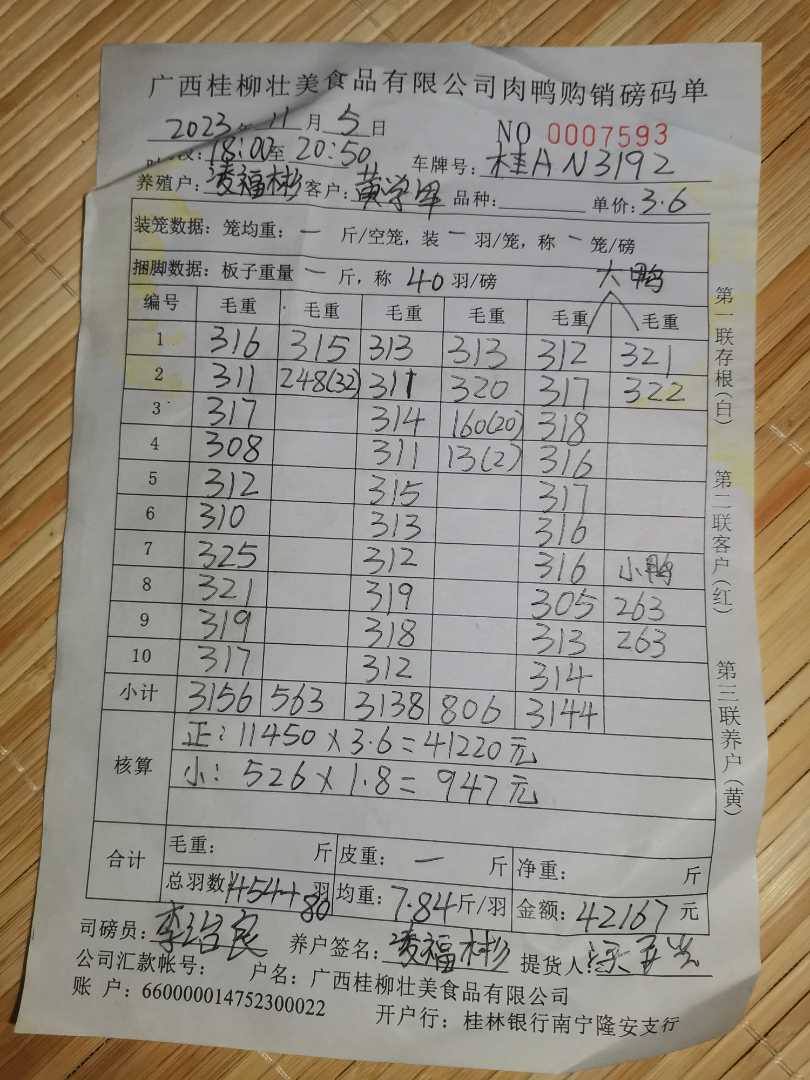 广西桂柳壮美食品有限公司肉鸭购销磅码单
2023年 11 月 5 日 NO 0007593
18:00至 20:50 车牌号: 桂AN3192
养殖户: 凌福彬 客户: 黄学军 品种: 单价: 3.6
装笼数据: 笼均重: 一 斤/空笼, 装 一 羽/笼, 称 一 笼/磅
捆脚数据: 板子重量 一 斤, 称 40 羽/磅 大鸭
编号 毛重 毛重 毛重 毛重 毛重 毛重
1 316 315 313 313 312 321
2 311 248(32) 311 320 317 322
3 317 314 160(20) 318
4 308 311 13(2) 316
5 312 315 317
6 310 313 316
7 325 312 316 小鸭
8 321 319 305 263
9 319 318 313 263
10 317 312 314
小计 3156 563 3138 806 3144
核算 正: 11450×3.6=41220元
小: 526×1.8=947元
合计 毛重: 斤 皮重: 一 斤 净重: 斤
总羽数 1454+80 羽 均重: 7.84 斤/羽 金额: 42167 元
司磅员: 李绍良 养户签名: 凌福彬 提货人:
公司汇款帐号: 户名: 广西桂柳壮美食品有限公司
账 户: 660000014752300022 开户行: 桂林银行南宁隆安支行
第一联存根(白) 第二联客户(红) 第三联养户(黄)